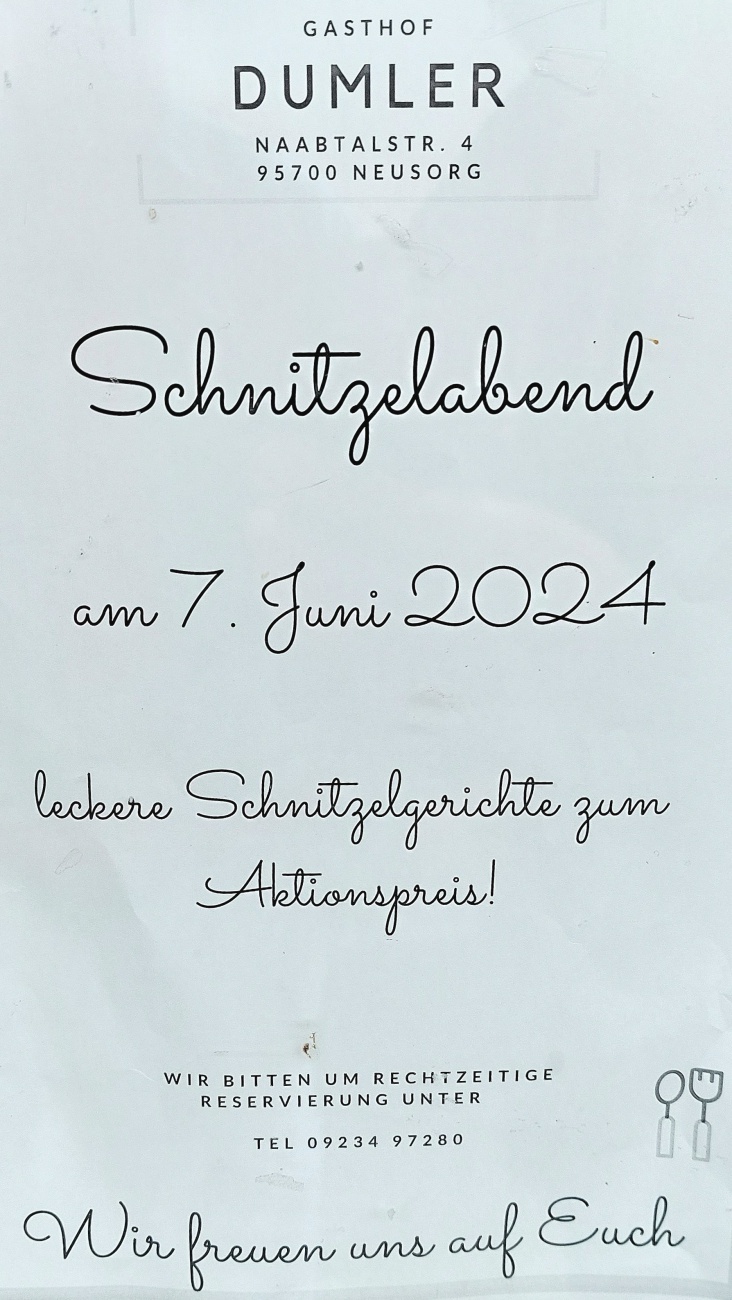 GASTHOF
DUMLER
NAABTALSTR. 4
95700 NEUSORG
Schnitzelabend
am 7. Juni 2024
leckere Schnitzelgerichte zum
Aktionspreis!
WIR BITTEN UM RECHTZEITIGE
RESERVIERUNG UNTER
TEL 09234 97280
Wir freuen uns auf Euch